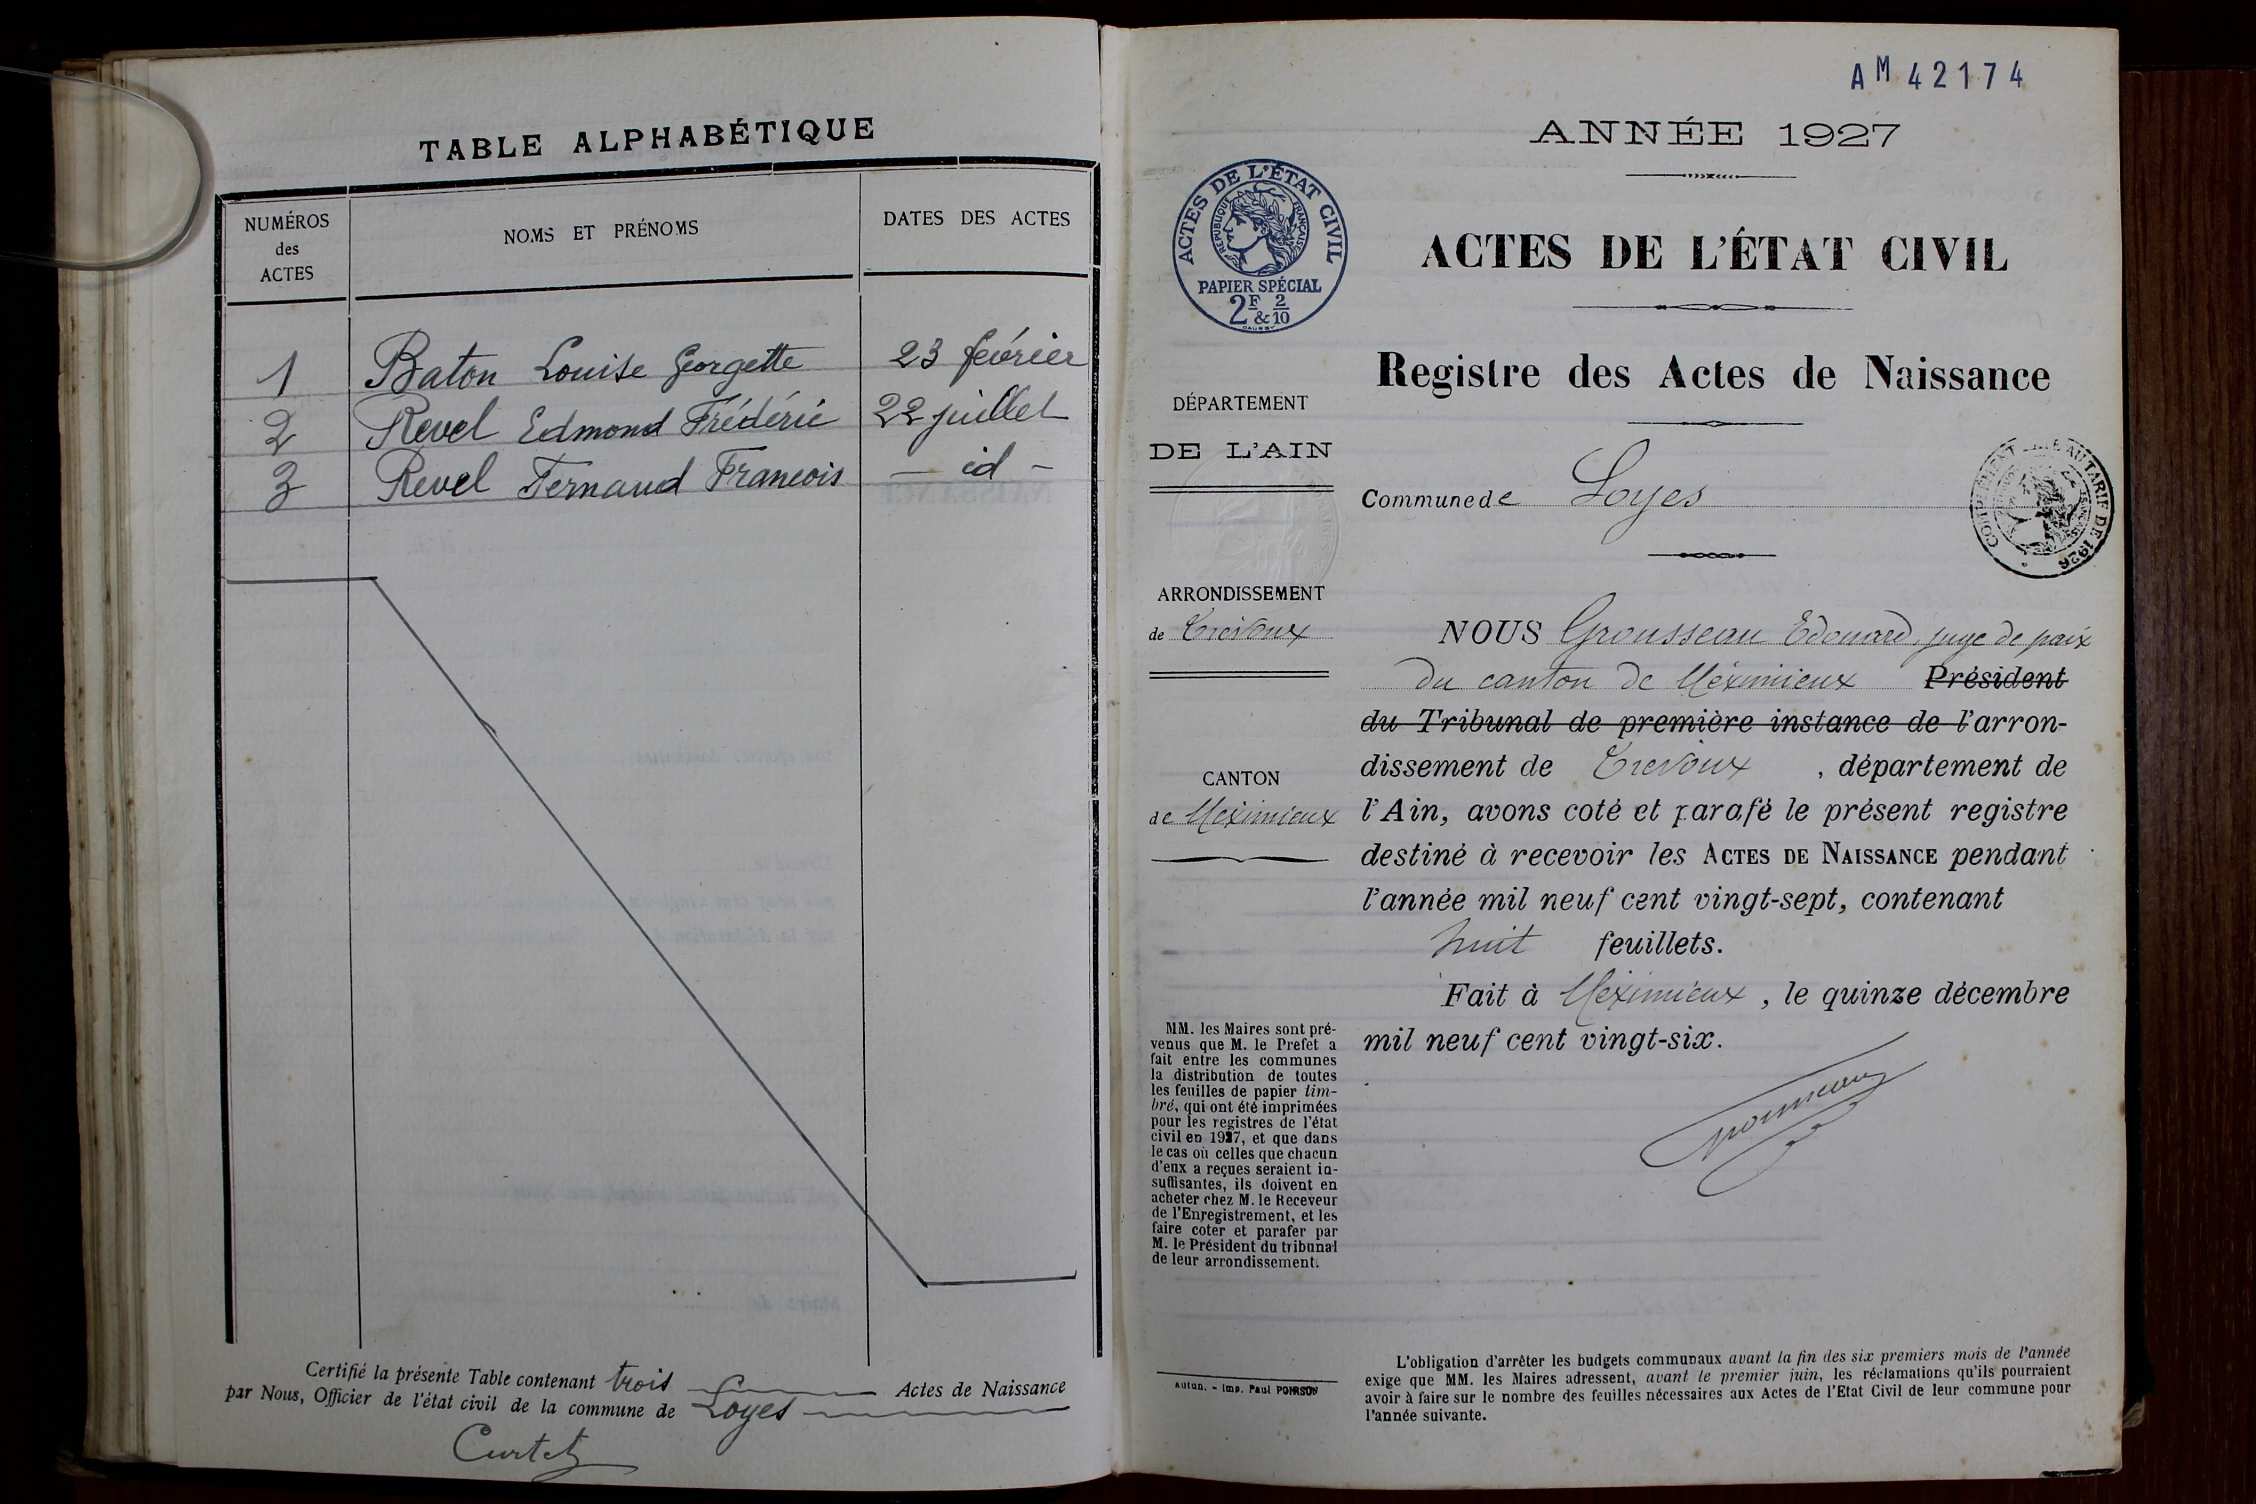 TABLE ALPHABÉTIQUE
NUMÉROS des ACTES
NOMS ET PRÉNOMS
DATES DES ACTES
1 Baton Louise Georgette 23 février
2 Revel Edmond Frédéric 22 juillet
3 Revel Fernand Francois — id —
Certifié la présente Table contenant trois Actes de Naissance
par Nous, Officier de l'état civil de la commune de Loyes
Curtet
AM 42174
ANNÉE 1927
ACTES DE L'ÉTAT CIVIL
RÉPUBLIQUE FRANÇAISE
PAPIER SPÉCIAL
2F & 2/10
ACTES DE L'ÉTAT CIVIL
Registre des Actes de Naissance
DÉPARTEMENT
DE L'AIN
Commune de Loyes
COMPLÉMENT AU TARIF DE 1926
ARRONDISSEMENT
de Trévoux
CANTON
de Méximieux
NOUS Grousseau Edouard, juge de paix
du canton de Méximieux Président
du Tribunal de première instance de l'arron-
dissement de Trévoux, département de
l'Ain, avons coté et parafé le présent registre
destiné à recevoir les ACTES DE NAISSANCE pendant
l'année mil neuf cent vingt-sept, contenant
huit feuillets.
Fait à Méximieux, le quinze décembre
mil neuf cent vingt-six.
MM. les Maires sont pré-
venus que M. le Prefet a
fait entre les communes
la distribution de toutes
les feuilles de papier tim-
bré, qui ont été imprimées
pour les registres de l'état
civil en 1927, et que dans
le cas où celles que chacun
d'eux a reçues seraient in-
suffisantes, ils doivent en
acheter chez M. le Receveur
de l'Enregistrement, et les
faire coter et parafer par
M. le Président du tribunal
de leur arrondissement.
Autun. - Imp. Paul POIRSON
L'obligation d'arrêter les budgets communaux avant la fin des six premiers mois de l'année
exige que MM. les Maires adressent, avant le premier juin, les réclamations qu'ils pourraient
avoir à faire sur le nombre des feuilles nécessaires aux Actes de l'Etat Civil de leur commune pour
l'année suivante.